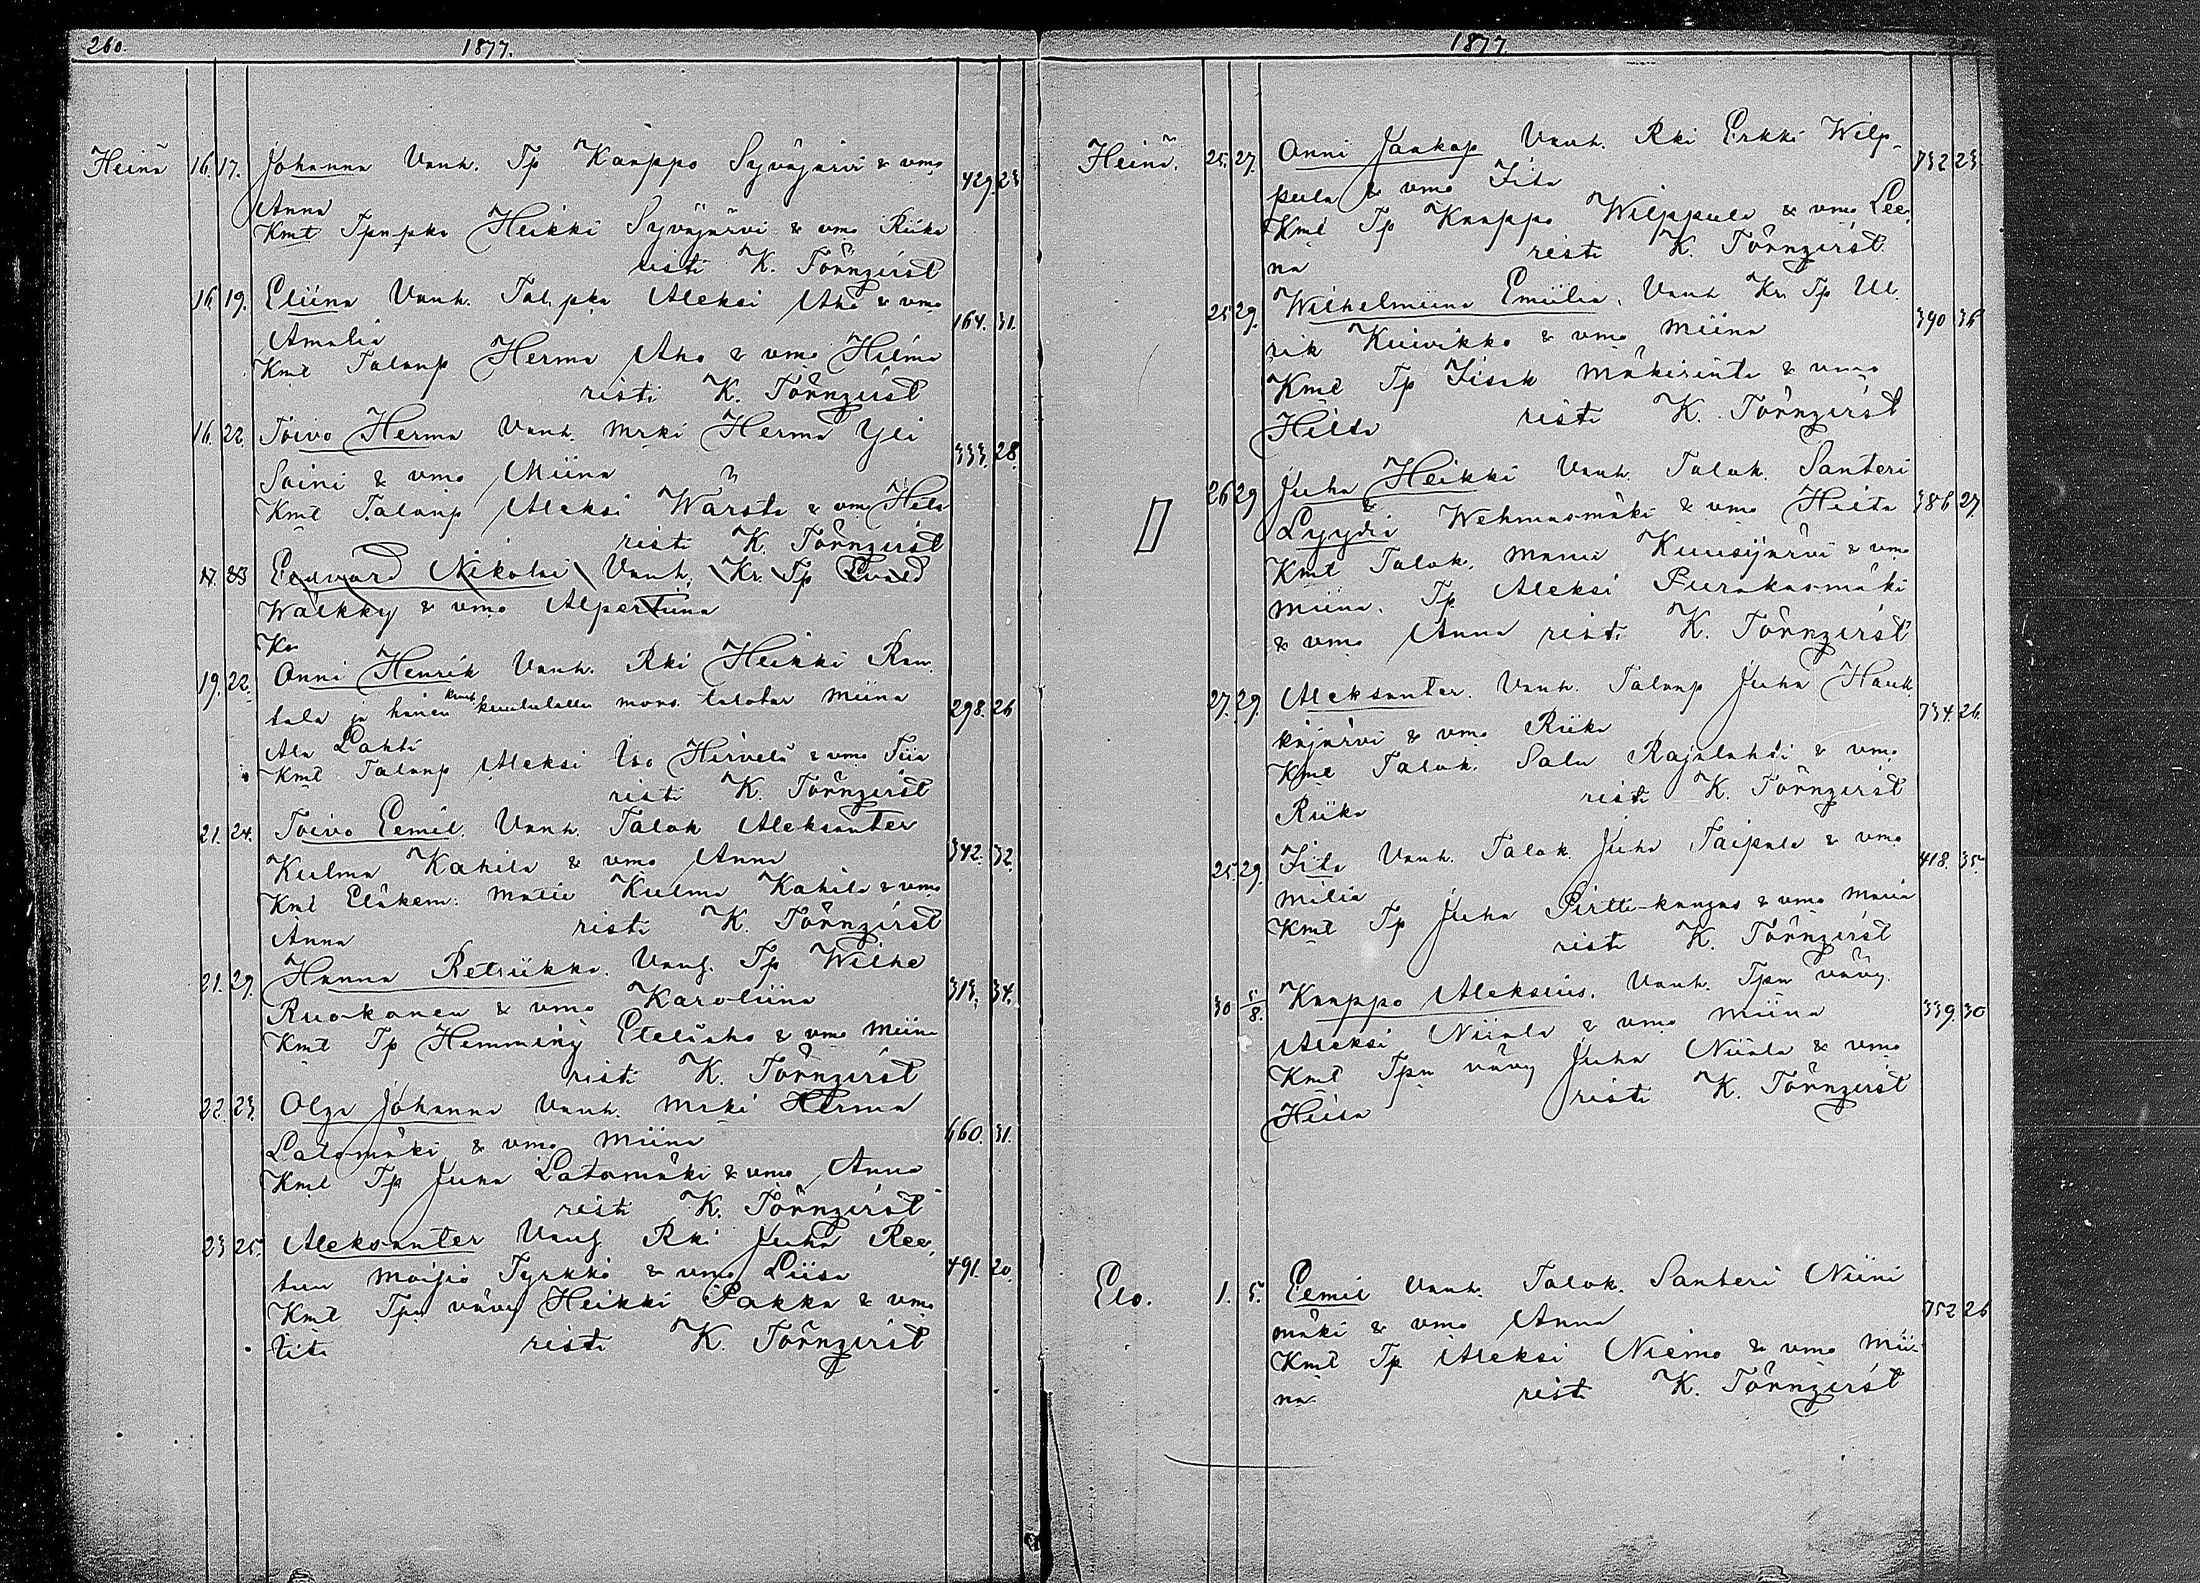 260. 1877.
Heinä 16. 17. Johanna Vanh. Tp Kaappo Syväjärvi & vmo 429. 23
Anna
Kmt Tpnpka Heikki Syväjärvi & vmo Riika
risti K. Törnqvist
16 19. Eliina Vanh. Tal. pka Aleksi Aho & vmo 164. 31.
Amalia
Kmt Talonp Herma Aho & vmo Hilma
risti K. Törnqvist
16. 22. Toivo Herma Vanh. Mrki Herma Yli 333. 28.
Soini & vmo Miina
Kmt Talonp Aleksi Warsta & vmo
risti K. Törnqvist
17. 23 Edvard Nikolai Vanh. Kr. Tp Evald
Wälkky & vmo Alpertiina
Km
19. 22. Onni Henrik Vanh. Rki Heikki Ran
tala ja hänen kuulutettu mors. talotar Miina 298. 26
Ala Lahti
Kmt Talonp Aleksi Iso Hirvelä & vmo Fiia
risti K. Törnqvist
21. 24. Toivo Eemil. Vanh. Talok Aleksanter
Kulma Kahila & vmo Anna 342. 32.
Kmt Eläkem. Matti Kulma Kahila & vmo
Anna risti K. Törnqvist
21. 29. Hanna Retriikka. Vanh. Tp Wilhe
Ruokonen & vmo Karoliina 313. 34.
Kmt Tp Hemming Eteläaho & vmo Miina
risti K. Törnqvist
22. 23. Olga Johanna Vanh. Mrki Herma
Latomäki & vmo Miina 660. 31.
Kmt Tp Juha Latomäki & vmo Anna
risti K. Törnqvist
23 25. Aleksanter Vanh Rki Juha Ree
tun Moisio Tyrkkö & vmo Liisa 491. 20.
Kmt Tpn vävy Heikki Pakka & vmo
Iita risti K. Törnqvist
1877.
Heinä. 25. 27. Onni Jaakop Vanh. Rki Erkki Wilp- 732 23.
pula & vmo Fiia
Kmt Tp Kaappo Wilppula & vmo Lee
na risti K. Törnqvist
25 29. Wilhelmiina Emiilia. Vanh Kr. Tp Ul. 390 36
rik Kuivikko & vmo Miina
Kmt Tp Iisak Mäkirinta & vmo
Hilda risti K. Törnqvist
26 29 Juha Heikki Vanh. Talok. Santeri
& Lyydia Wehmasmäki & vmo Hilda 386 27.
Kmt Talok. Manu Kuusijärvi & vmo
Miina. Tp Aleksi Purakasmäki
& vmo Anna risti K. Törnqvist
27. 29. Aleksanter. Vanh. Talonp Juha Hauk
kajärvi & vmo Riika 734. 26.
Kmt Talok. Salu Rajalahti & vmo
Riika risti K. Törnqvist
25. 29. Iita Vanh. Talok. Juha Taipale & vmo 418. 35.
Milia
Kmt Tp Juha Pirtti-kangas & vmo Maria
risti K. Törnqvist
30 5/8. Kaappo Aleksius. Vanh. Tpn vävy
Aleksi Niinla & vmo Miina 339. 30
Kmt Tpn vävy Juha Niinla & vmo
Hiisa risti K. Törnqvist
Elo. 1. 5. Eemil Vanh. Talok. Santeri Niini
mäki & vmo Anna 752 26
Kmt Tp Aleksi Niemo & vmo Mii
na risti K. Törnqvist